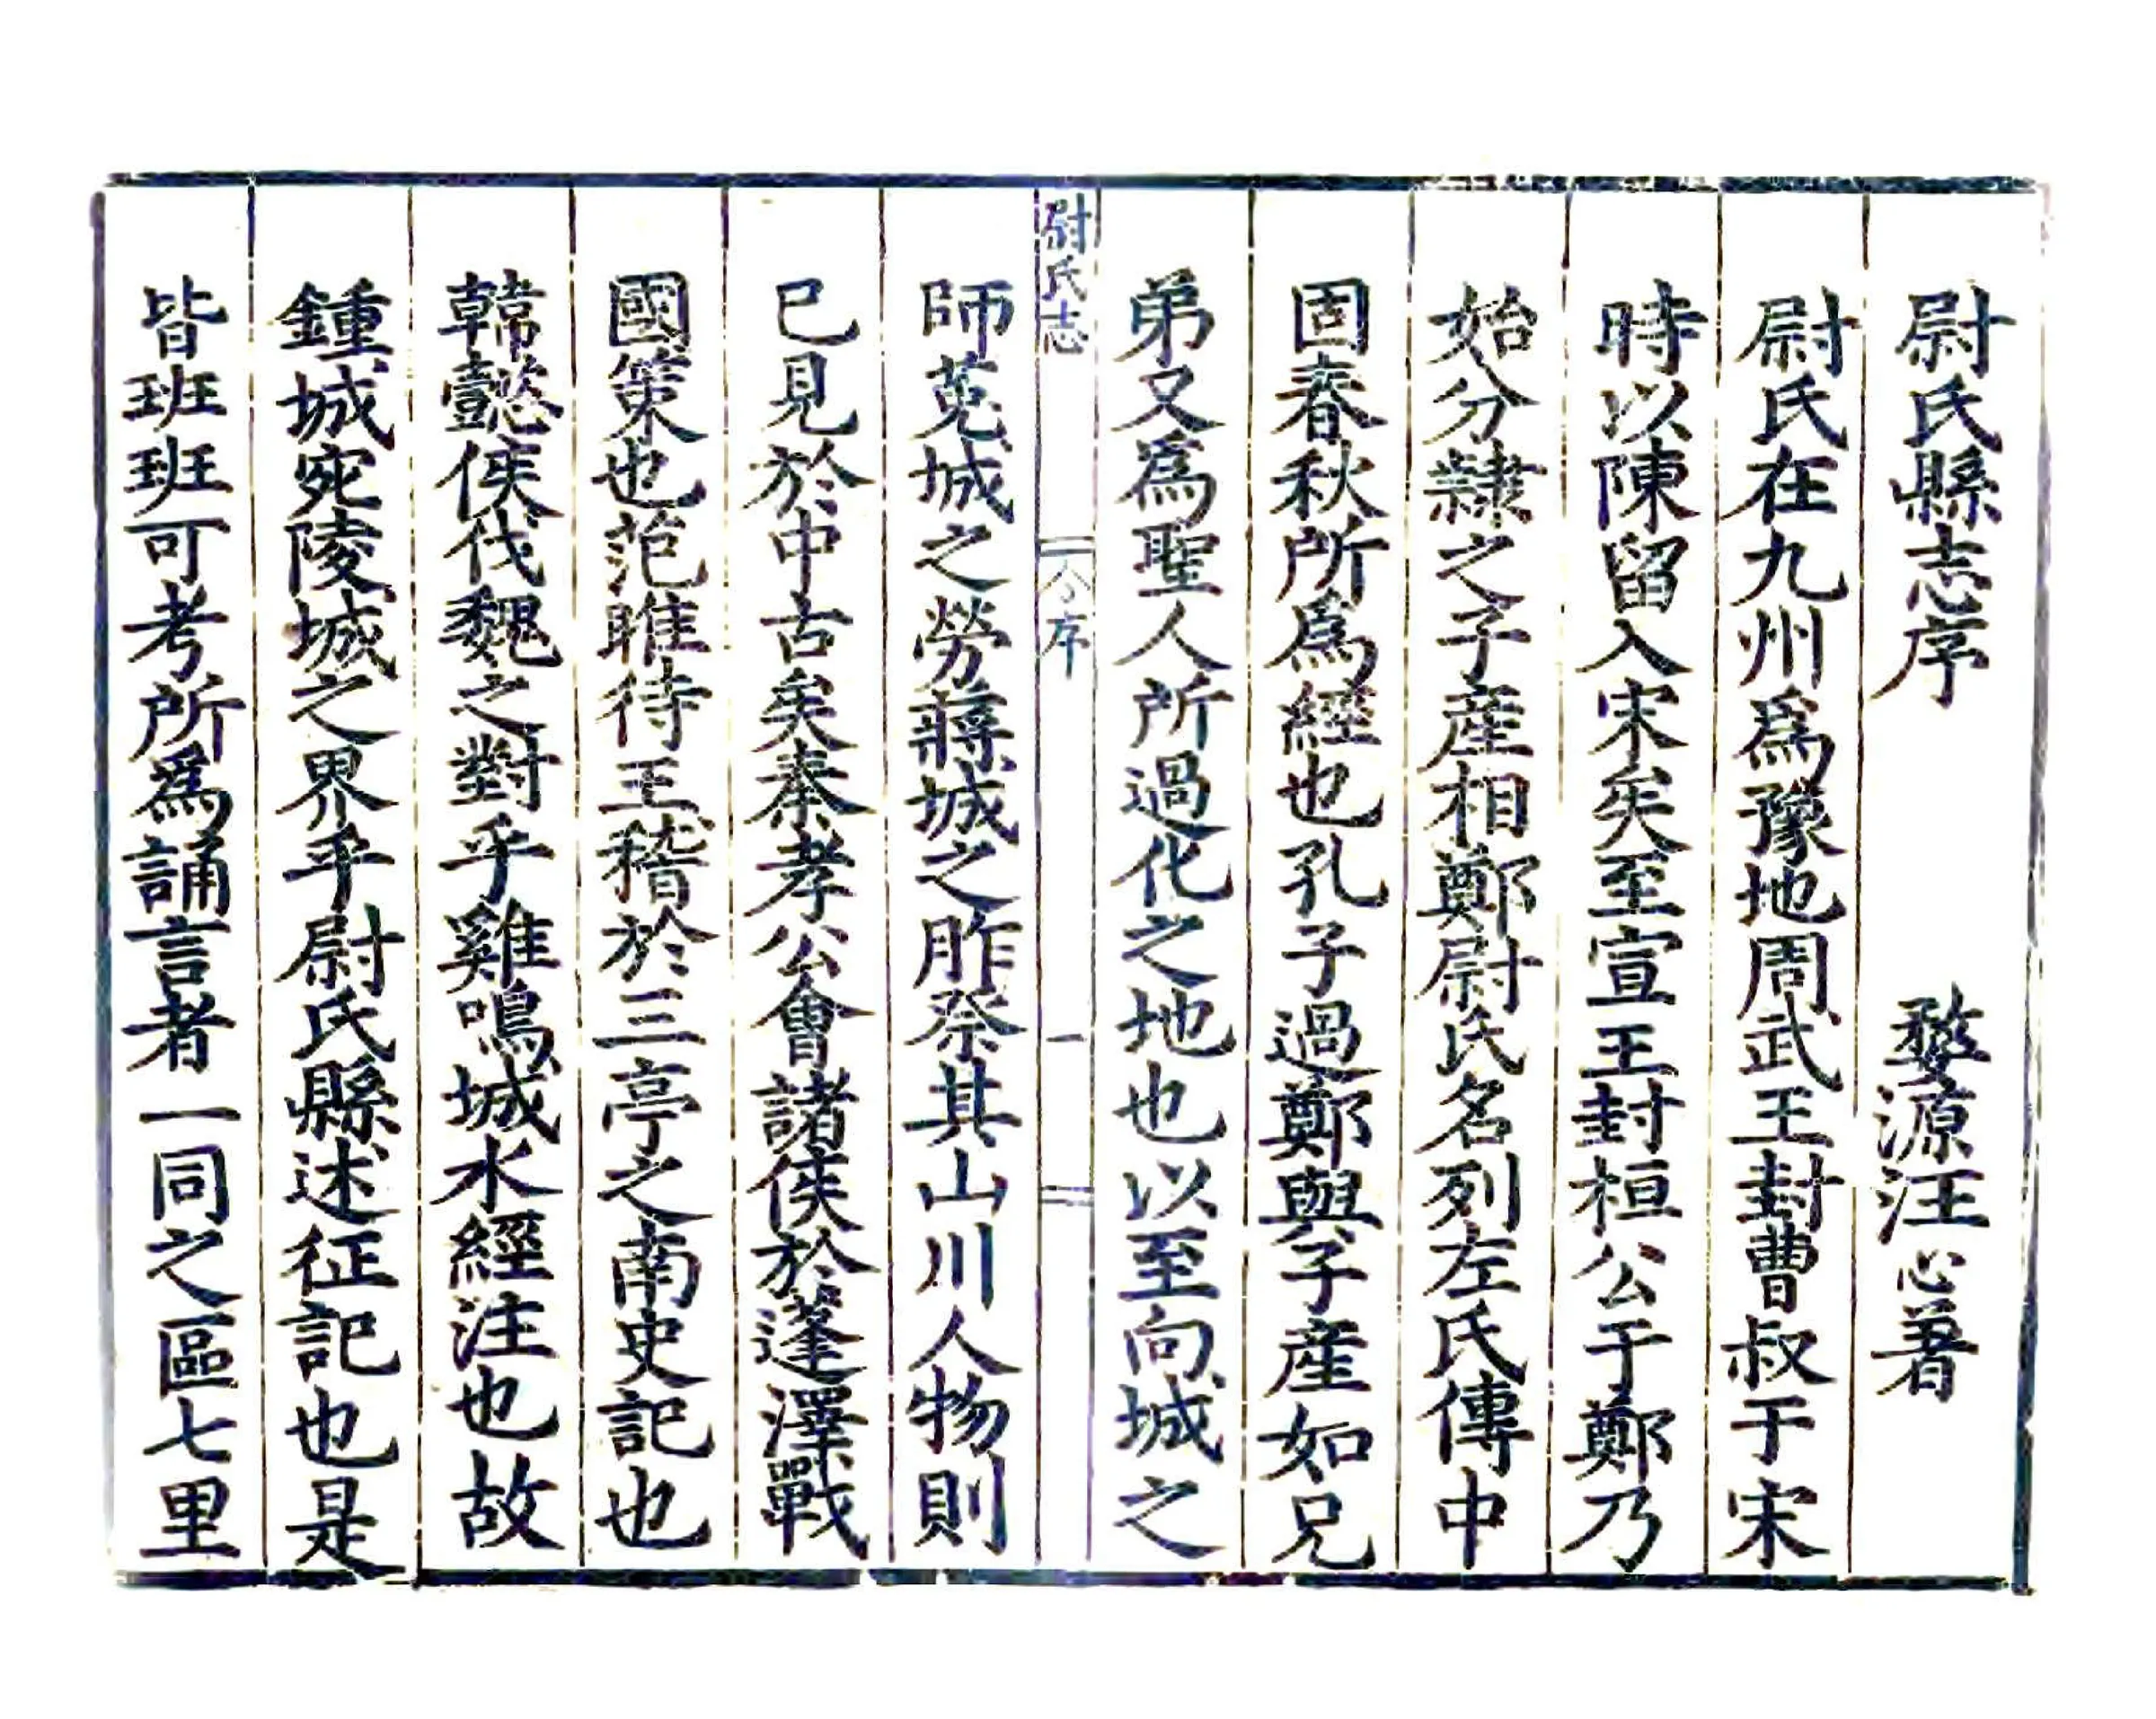 尉氏縣志序　婺源汪心著
尉氏在九州爲豫地周武王封曹叔于宋
時以陳留入宋矣至宣王封桓公于鄭乃
始分隸之子産相鄭尉氏名列左氏傳中
固春秋所爲經也孔子過鄭與子産如兄
弟又爲聖人所過化之地也以至向城之
尉氏志　序　一
師菟城之勞蔣城之胙祭其山川人物則
已見於中古矣秦孝公會諸侯於蓬澤戰
國策也范睢待王稽於三亭之南史記也
韓懿侯伐魏之對乎雞鳴城水經注也故
鍾城宛陵城之界乎尉氏縣述征記也是
皆班班可考所爲誦言者一同之區七里